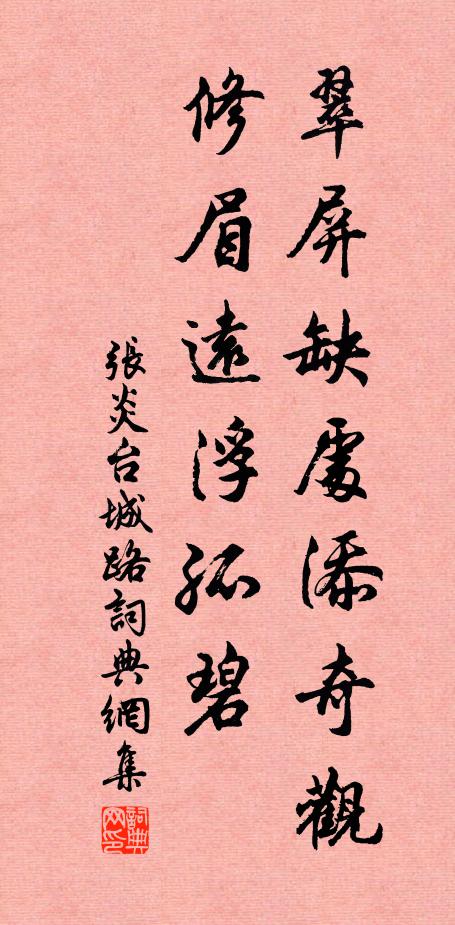 翠屏缺處添奇觀
修眉遠浮孤碧
張炎台城路詞典網集
詞典网印